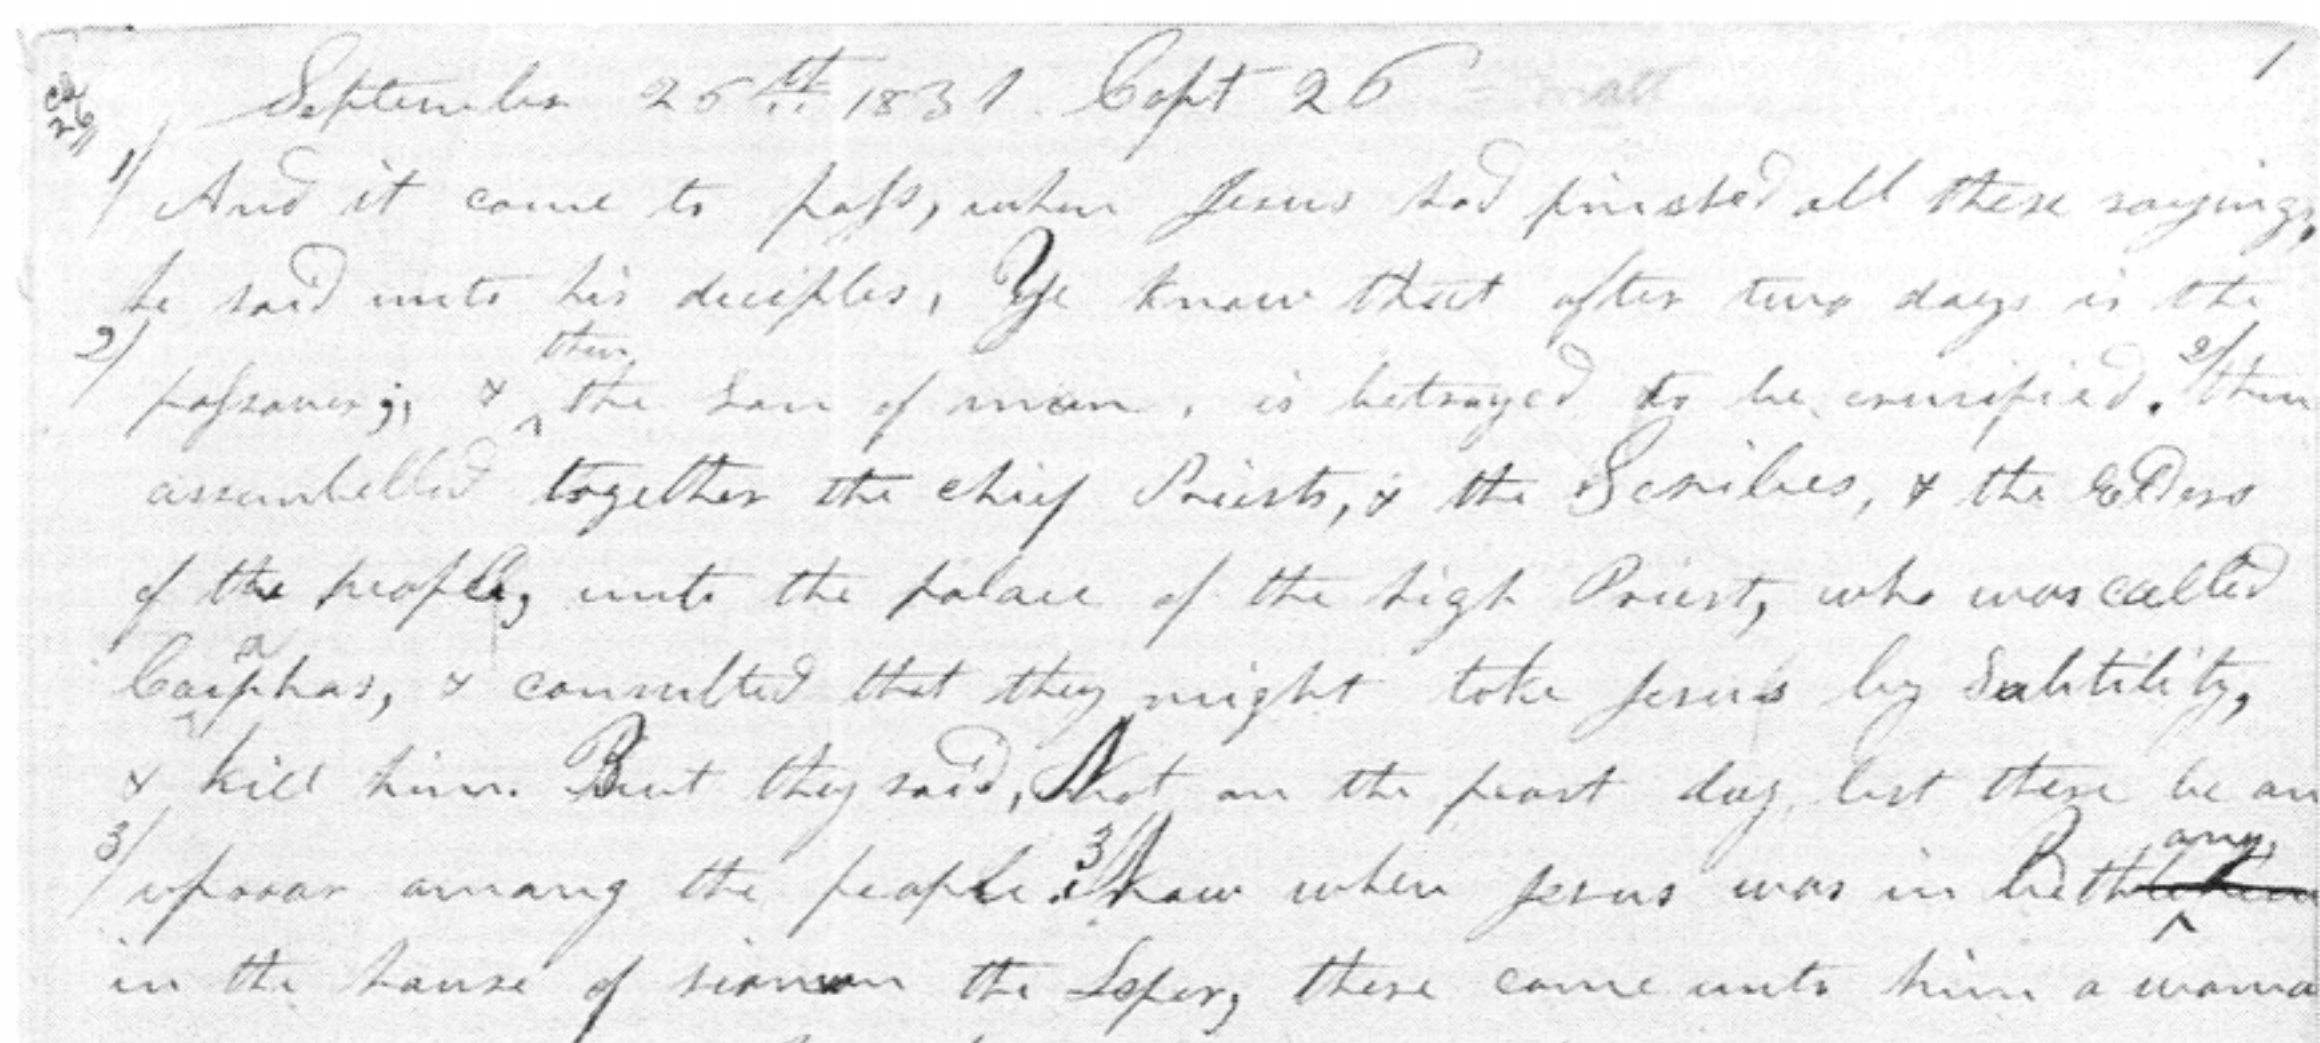 ch 26 September 26th 1831 Capt 26 Matt 1
1/ And it came to pass, when Jesus had finished all these sayings,
he said unto his deciples, Ye know that after two days is the
then
2/ passover;, & ^ the Son of man, is betrayed to be crusified. 2/ then
assembelled together the chief Priests, & the Scribes, & the Elders
of the people, unto the palace of the high Priest, who was called
a
Caiphas, & consulted that they might take Jesus by Subtility,
& kill him. But they said, Not on the feast day, lest there be an
any,
3/ uproar among the people. 3/ Now when Jesus was in Beth
in the house of simon the Leper, there came unto him a woma